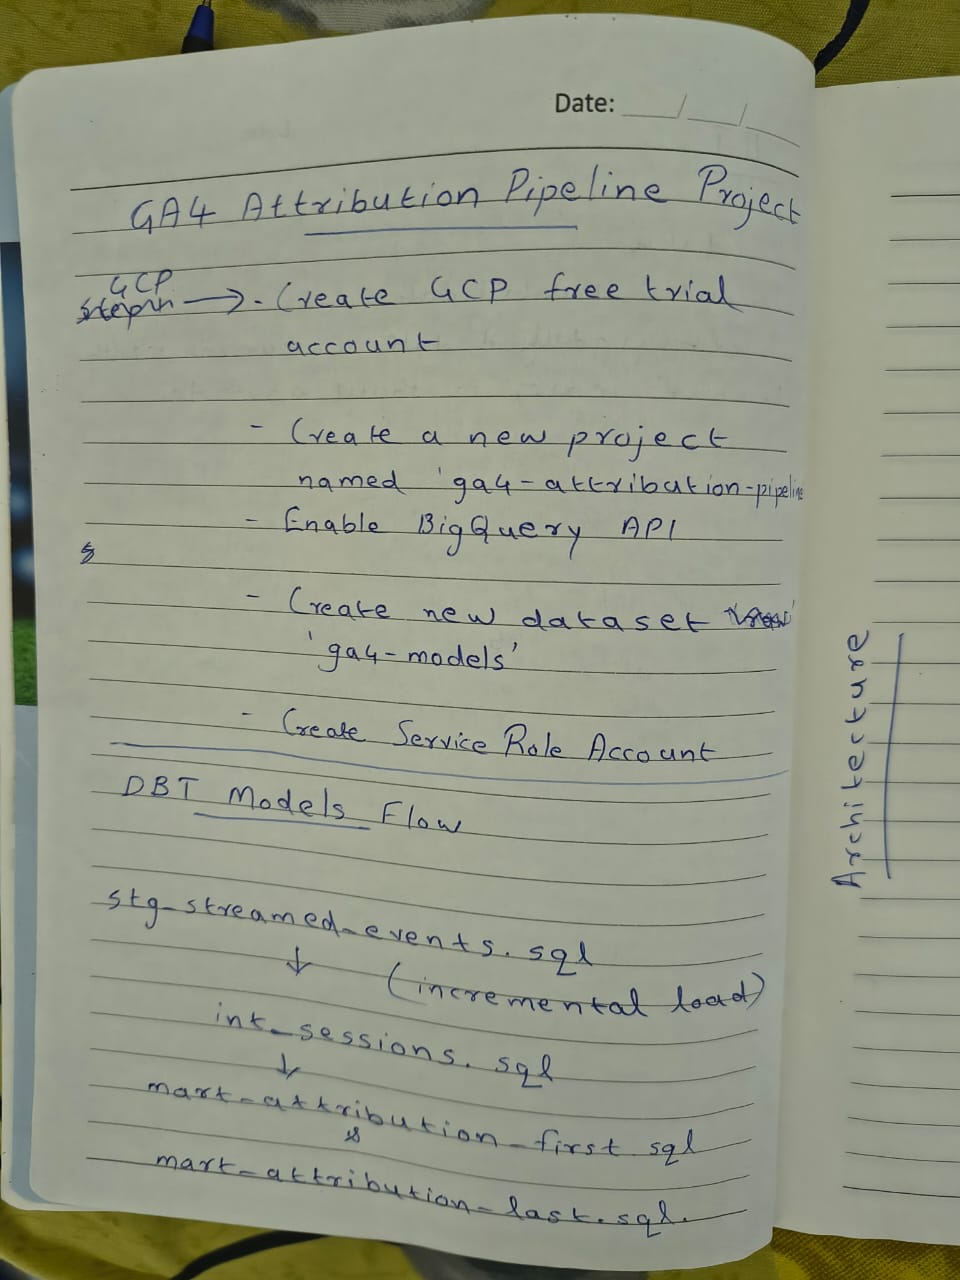 Date: __/__/__
GA4 Attribution Pipeline Project
GCP
→ - Create GCP free trial
account
- Create a new project
named 'ga4-attribution-pipeline
- Enable BigQuery API
- Create new dataset
'ga4-models'
- Create Service Role Account
DBT Models Flow
stg_streamed_events.sql
↓ (incremental load)
int_sessions.sql
↓
mart_attribution_first sql
&
mart_attribution_last.sql.
Architecture